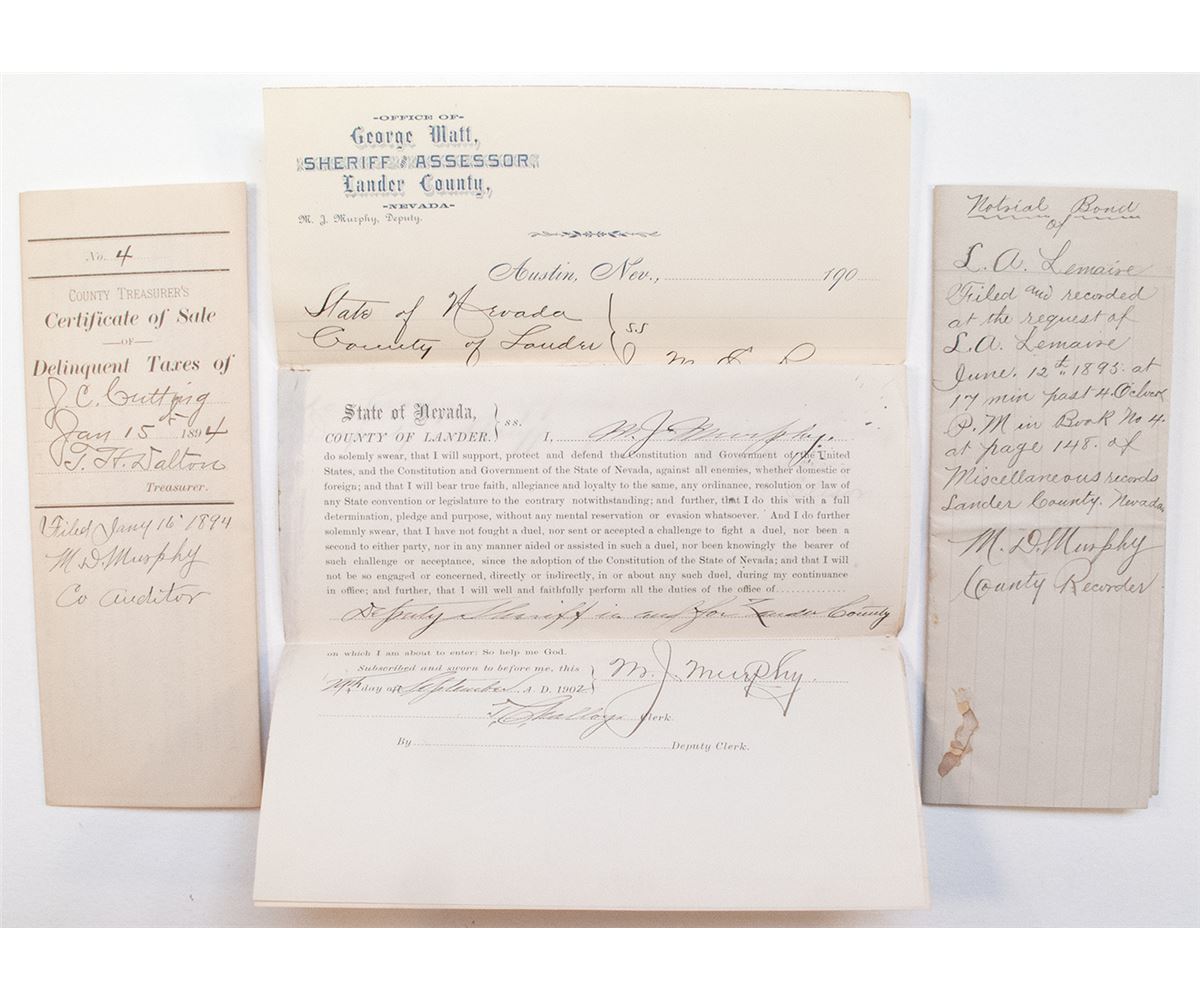 No. 4
COUNTY TREASURER'S
Certificate of Sale
—OF—
Delinquent Taxes of
J. C. Cutting
Jan 15 1894
T. H. Dalton
Treasurer.
Filed Jany 16 1894
M. D. Murphy
Co Auditor
-OFFICE OF-
George Watt,
SHERIFF and ASSESSOR,
Lander County,
-NEVADA-
M. J. Murphy, Deputy.
Austin, Nev., 190
State of Nevada
County of Lander } ss
State of Nevada,
COUNTY OF LANDER. } ss. I, M. J. Murphy,
do solemnly swear, that I will support, protect and defend the Constitution and Government of the United
States, and the Constitution and Government of the State of Nevada, against all enemies, whether domestic or
foreign; and that I will bear true faith, allegiance and loyalty to the same, any ordinance, resolution or law of
any State convention or legislature to the contrary notwithstanding; and further, that I do this with a full
determination, pledge and purpose, without any mental reservation or evasion whatsoever. And I do further
solemnly swear, that I have not fought a duel, nor sent or accepted a challenge to fight a duel, nor been a
second to either party, nor in any manner aided or assisted in such a duel, nor been knowingly the bearer of
such challenge or acceptance, since the adoption of the Constitution of the State of Nevada; and that I will
not be so engaged or concerned, directly or indirectly, in or about any such duel, during my continuance
in office; and further, that I will well and faithfully perform all the duties of the office of
Deputy Sheriff in and for Lander County
on which I am about to enter: So help me God.
Subscribed and sworn to before me, this
day of September A. D. 1902 } M. J. Murphy.
Clerk.
By Deputy Clerk.
Notrial Bond
of
L. A. Lemaire
Filed and recorded
at the request of
L. A. Lemaire
June. 12th, 1895. at
17 min past 4. O'clock
P. M in Book No 4.
at page 148. of
Miscellaneous records
Lander County. Nevada.
M. D. Murphy
County Recorder